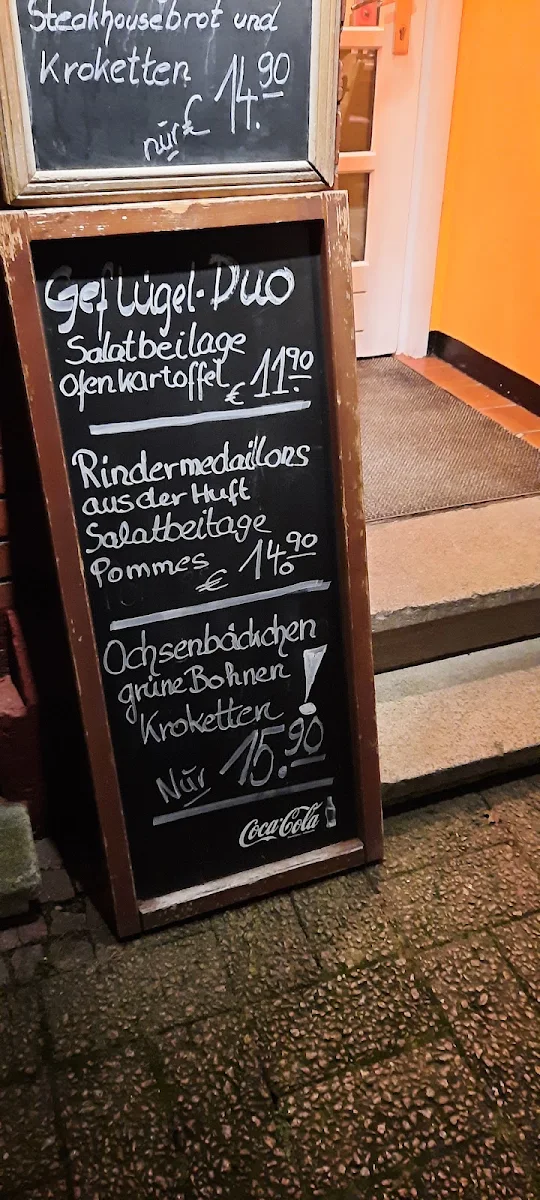 Steakhousebrot und
Kroketten 14.90
nur €
Geflügel-Duo
Salatbeilage
Ofenkartoffel € 11.90
Rindermedaillons
aus der Huft
Salatbeilage
Pommes € 14.90
Ochsenbäckchen
grüne Bohnen !
Kroketten
Nur 15.90
Coca-Cola